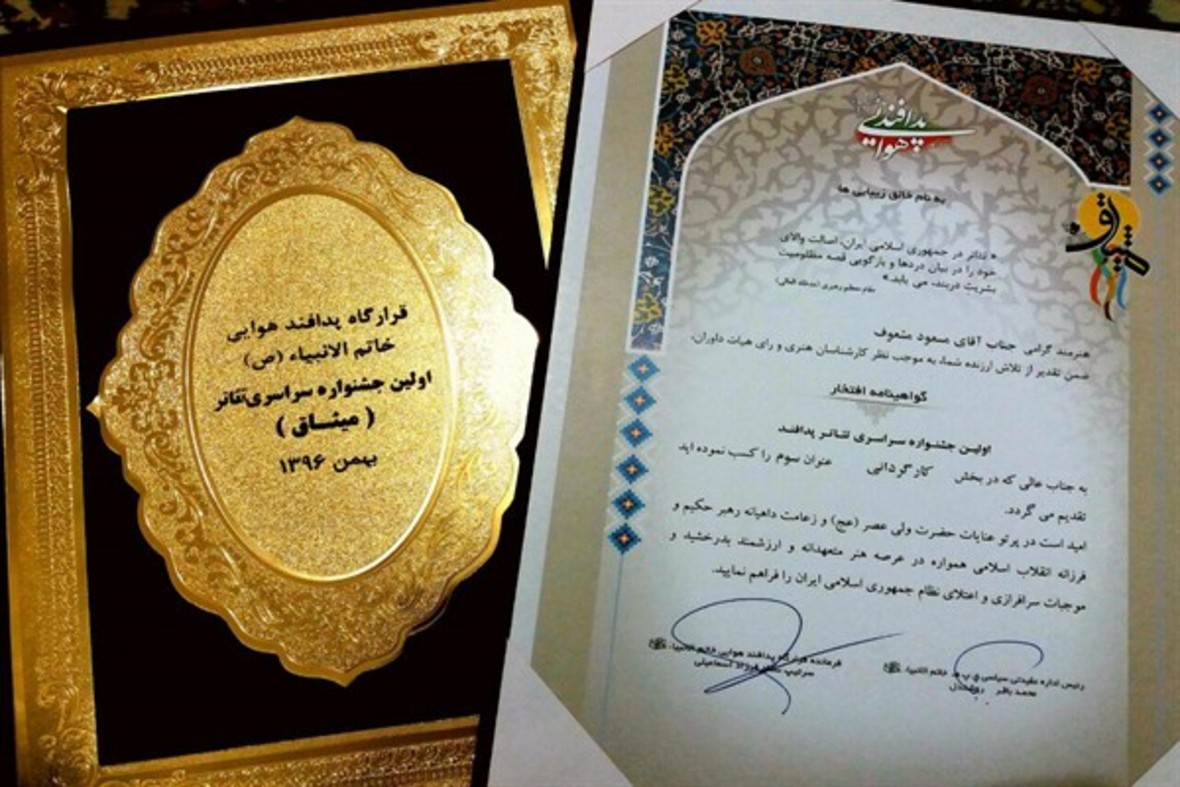 قرارگاه پدافند هوایی
خاتم الانبیاء (ص)
اولین جشنواره سراسری تئاتر
( میثاق )
بهمن ۱۳۹۶
پدافند
هوایی
به نام خالق زیبایی ها
« تئاتر در جمهوری اسلامی ایران، اصالت والای
خود را در بیان دردها و بازگویی قصه مظلومیت
بشریت دربند، می یابد.»
مقام معظم رهبری (مدظله العالی)
هنرمند گرامی جناب آقای مسعود متعوف
ضمن تقدیر از تلاش ارزنده شما، به موجب نظر کارشناسان هنری و رای هیات داوران،
گواهینامه افتخار
اولین جشنواره سراسری تئاتر پدافند
به جناب عالی که در بخش کارگردانی عنوان سوم را کسب نموده اید
تقدیم می گردد.
امید است در پرتو عنایات حضرت ولی عصر (عج) و زعامت داهیانه رهبر حکیم و
فرزانه انقلاب اسلامی همواره در عرصه هنر متعهدانه و ارزشمند بدرخشید و
موجبات سرافرازی و اعتلای نظام جمهوری اسلامی ایران را فراهم نمایید.
رئیس اداره عقیدتی سیاسی ق پ هـ خاتم الانبیاء
محمد باقر
فرمانده قرارگاه پدافند هوایی خاتم الانبیاء
سرتیپ فرزاد اسماعیلی